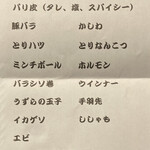 パリ皮(タレ、塩、スパイシー)
豚バラ かしわ
とりハツ とりなんこつ
ミンチボール ホルモン
バラシソ巻 ウインナー
うずらの玉子 手羽先
イカゲソ ししゃも
エビ